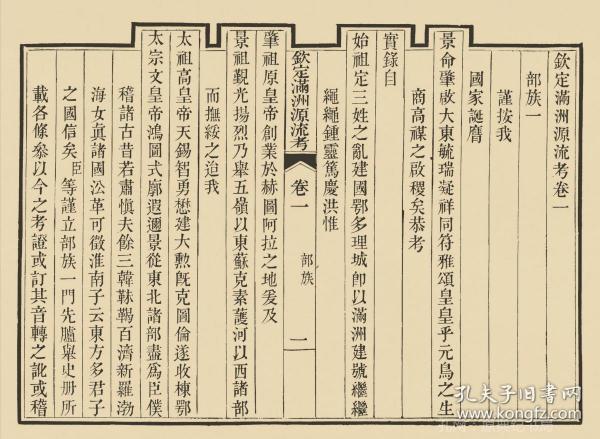 欽定滿洲源流考卷一
部族一
謹按我
國家誕膺
景命肇啟大東毓瑞凝祥同符雅頌皇皇乎元鳥之生
商高禖之啟稷矣恭考
實錄自
始祖定三姓之亂建國鄂多理城卽以滿洲建號繼繼
繩繩鍾靈篤慶洪惟
欽定滿洲源流考 卷一 部族 一
肇祖原皇帝創業於赫圖阿拉之地爰及
景祖觀光揚烈乃舉五嶺以東蘇克素護河以西諸部
而撫綏之迨我
太祖高皇帝天錫智勇懋建大勲旣克圖倫遂收棟鄂
太宗文皇帝鴻圖式廓遐邇景從東北諸部盡爲臣僕
稽諸古昔若肅愼夫餘三韓靺鞨百濟新羅渤
海女眞諸國沿革可徵淮南子云東方多君子
之國信矣臣等謹立部族一門先臚舉史册所
載各條叅以今之考證或訂其音轉之訛或稽
孔夫子旧书网
www.kongfz.com